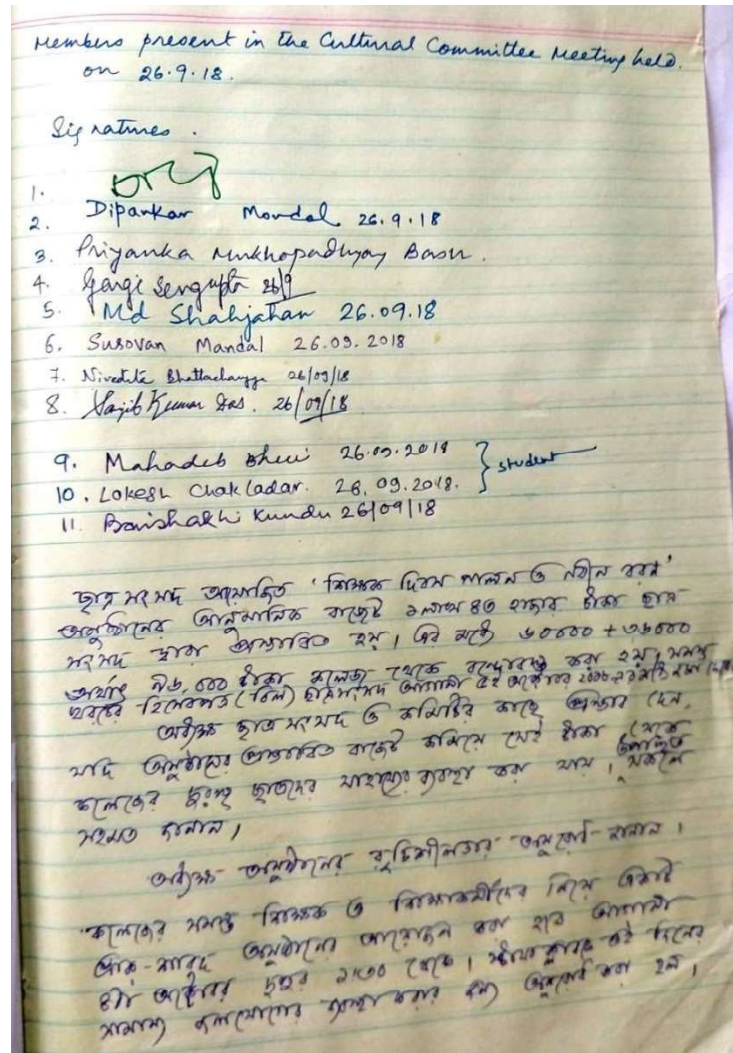 Members present in the Cultural Committee Meeting held.
on 26.9.18.
Signatures.
1.
2. Dipankar Mondal 26.9.18
3. Priyanka Mukhopadhyay Basu.
4. Gargi Sengupta 26/9
5. Md Shahjahan 26.09.18
6. Susovan Mandal 26.09.2018
7. Nivedita Bhattacharyya 26/09/18
8. Sajib Kumar Das. 26/09/18
9. Mahadeb 26.09.2018
10. Lokesh Chakladar. 26.09.2018. } student
11. Baishakhi Kundu 26/09/18
ছাত্র সংসদ আয়োজিত 'শিক্ষক দিবস পালন ও নবীন বরণ'
অনুষ্ঠানের আনুমানিক বাজেট ১ লাখ ৪৩ হাজার টাকা ছাত্র
সংসদ দ্বারা প্রস্তাবিত হয়। এর মধ্যে ৬০০০০ + ৩৬০০০
অর্থাৎ ৯৬,০০০ টাকা কলেজ থেকে বন্দোবস্ত করা হয়। সমস্ত
খরচের হিসেবপত্র (বিল) ছাত্রসংসদ আগামী ৫ই অক্টোবর
অধ্যক্ষ ছাত্র সংসদ ও কমিটির কাছে প্রস্তাব দেন,
যদি অনুষ্ঠানের প্রস্তাবিত বাজেট কমিয়ে সেই টাকা থেকে
কলেজের দুঃস্থ ছাত্রদের সাহায্যের ব্যবস্থা করা যায়। উপস্থিত সকলে
সহমত জানান।
অধ্যক্ষ অনুষ্ঠানের রুচিশীলতার অনুরোধ জানান।
কলেজের সমস্ত শিক্ষক ও শিক্ষাকর্মীদের নিয়ে একটি
প্রাক-শারদ অনুষ্ঠানের আয়োজন করা হবে আগামী
৪ঠা অক্টোবর দুপুর ১:৩০ থেকে। ঐ দিনের
সামান্য জলযোগের ব্যবস্থা করার জন্য অনুরোধ করা হল।